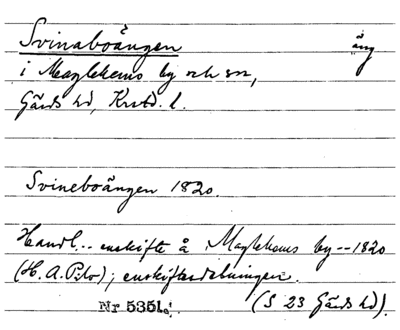 Svinaboängen äng
i Maglehems by och sn,
Gärds hd, Krstd. l.
Svineboängen 1820.
Handl... enskifte å Maglehems by -- 1820
(H. A. P:lo); enskiftesdelningen.
Nr 5351. (S 23 Gärds hd).